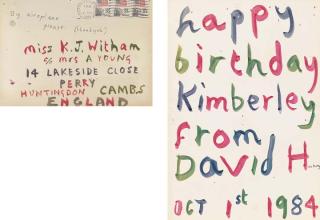 By airplane
please.
(thankyou)
miss K.J. Witham
c/o mrs A YOUNG
14 LAKESIDE CLOSE
PERRY
HUNTINGDON CAMBS
ENGLAND
happy
birthday
Kimberley
from
David H
OCT 1st 1984